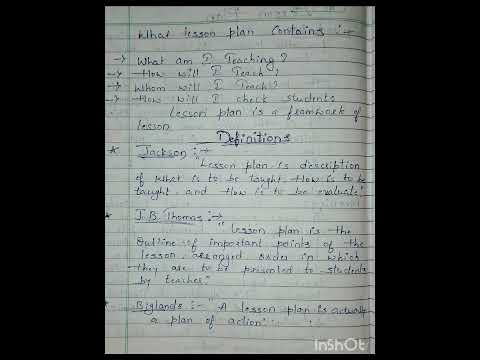 What lesson plan Contains :→
→ What am I Teaching?
→ How will I Teach?
→ Whom will I Teach?
→ How will I check students
Lesson plan is a framwork of
lesson
Definitions
* Jackson :→
"Lesson plan is description
of what is to be taught, How is to be
taught, and How is to be evaluate"
* J.B. Thomas :→
"Lesson plan is the
outline of important points of the
lesson arranged order in which
they are to be presented to students
by teacher."
* Biglands :- "A lesson plan is actually
a plan of action".
InShOt